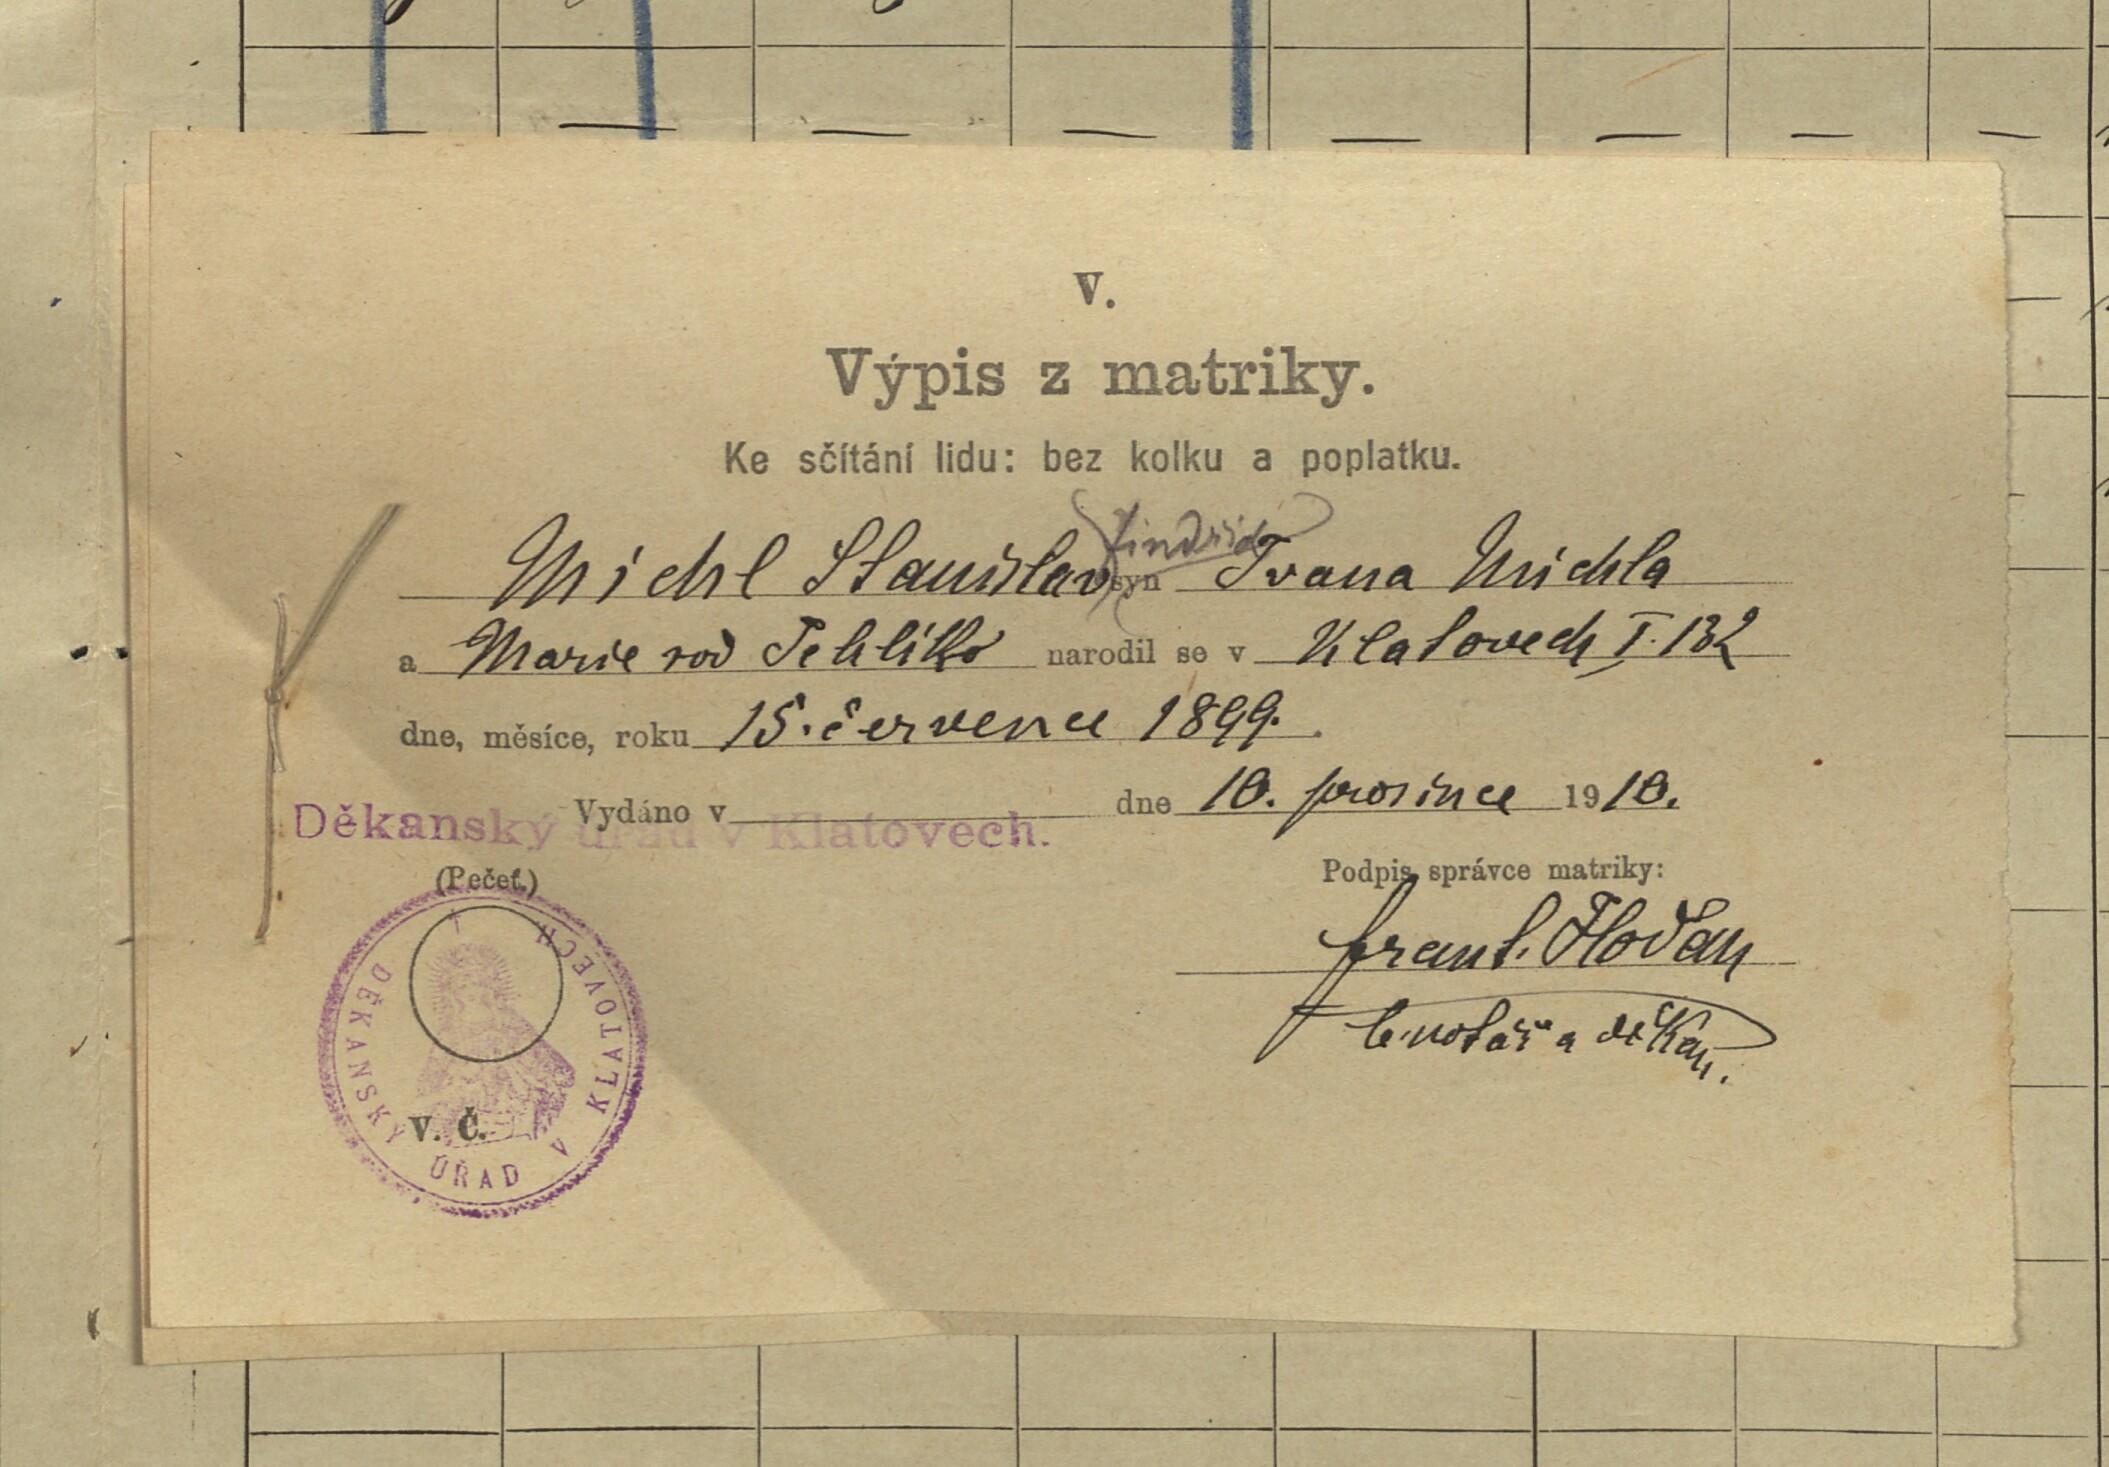 V.
Výpis z matriky.
Ke sčítání lidu: bez kolku a poplatku.
Jindřich
Michl Stanislav syn Ivana Michla
a Marie rod narodil se v Klatovech I. 132
dne, měsíce, roku 15. července 1899.
Vydáno v dne 10. prosince 1910.
Děkanský úřad v Klatovech.
(Pečeť.) Podpis správce matriky:
Frant. Hodan
b. notář a děkan.
DĚKANSKÝ ÚŘAD V KLATOVECH
V. Č.